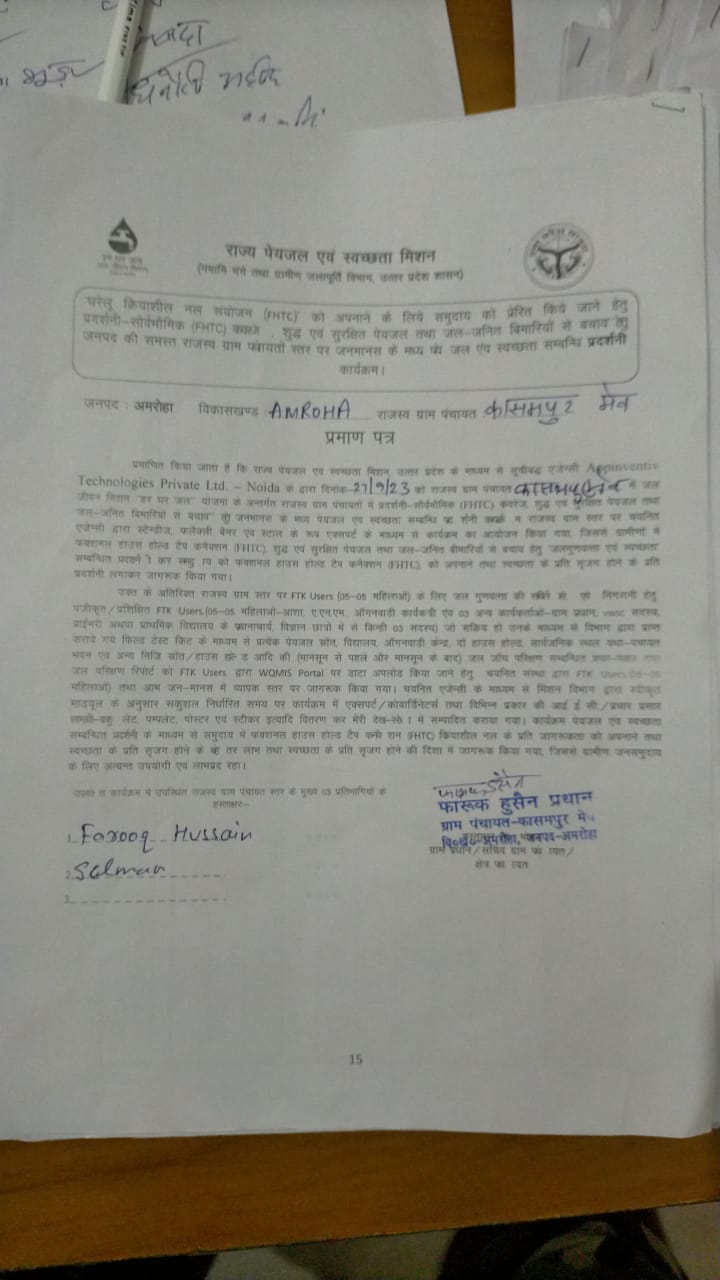 राज्य पेयजल एवं स्वच्छता मिशन
(नमामि गंगे तथा ग्रामीण जलापूर्ति विभाग, उत्तर प्रदेश शासन)
घरेलू क्रियाशील नल संयोजन (FHTC) को अपनाने के लिये समुदाय को प्रेरित किये जाने हेतु
प्रदर्शनी-सार्वभौमिक (FHTC) कवरेज , शुद्ध एवं सुरक्षित पेयजल तथा जल-जनित बिमारियों से बचाव हेतु
जनपद की समस्त राजस्व ग्राम पंचायतों स्तर पर जनमानस के मध्य पेय जल एंव स्वच्छता सम्बन्धि प्रदर्शनी
कार्यक्रम।
जनपद : अमरोहा विकासखण्ड : AMROHA राजस्व ग्राम पंचायत : कासमपुर मेव
प्रमाण पत्र
प्रमाणित किया जाता है कि राज्य पेयजल एवं स्वच्छता मिशन, उत्तर प्रदेश के माध्यम से सूचीबद्ध एजेन्सी Appinventiv
Technologies Private Ltd. – Noida के द्वारा दिनांक-27/9/23 को राजस्व ग्राम पंचायत में जल
जीवन मिशन "हर घर जल" योजना के अन्तर्गत राजस्व ग्राम पंचायतों में प्रदर्शनी-सार्वभौमिक (FHTC) कवरेज, शुद्ध एवं सुरक्षित पेयजल तथा
जल-जनित बिमारियों से बचाव हेतु जनमानस के मध्य पेयजल एंव स्वच्छता सम्बन्धि राजस्व ग्राम स्तर पर चयनित
एजेन्सी द्वारा स्टेन्डीज, फलैक्सी बैनर एंव स्टाल के रूप एक्सपर्ट के माध्यम से कार्यक्रम का आयोजन किया गया, जिससे ग्रामीणों में
फंक्शनल हाउस होल्ड टैप कनेक्शन (FHTC), शुद्ध एवं सुरक्षित पेयजल तथा जल-जनित बीमारियों से बचाव हेतु जलगुणवत्ता एवं स्वच्छता
सम्बन्धित को फंक्शनल हाउस होल्ड टैप कनेक्शन (FHTC), को अपनाने तथा स्वच्छता के प्रति सृजग होने के प्रति
प्रदर्शनी लगाकर जागरूक किया गया।
उक्त के अतिरिक्त राजस्व ग्राम स्तर पर FTK Users (05-05 महिलाओं) के लिए जल गुणवत्ता की एवं निगरानी हेतु
पंजीकृत/प्रशिक्षित FTK Users (05-05 महिलाओं-आशा, ए.एन.एम. ऑगनवाडी कार्यकत्री एंव 03 अन्य कार्यकर्ताओ-ग्राम प्रधान, vwsc सदस्य,
प्राईमरी अथवा प्राथमिक विद्यालय के प्रधानाचार्य, विज्ञान छात्रों में से किन्ही 03 सदस्य) जो सक्रिय हो उनके माध्यम से विभाग द्वारा प्राप्त
कराये गये फिल्ड टेस्ट किट के माध्यम से प्रत्येक पेयजल स्रोत, विद्यालय, ऑगनवाडी केन्द्र, दो हाउस होल्ड, सार्वजनिक स्थल यथा-पंचायत
भवन एंव अन्य निजि स्रोत/हाउस आदि की (मानसून से पहले और मानसून के बाद) जल जॉच परिक्षण सम्बन्धित
जल परिक्षण रिपोर्ट को FTK Users द्वारा WQMIS Portal पर डाटा अपलोड किया जाने हेतु चयनित संस्था द्वारा FTK Users (05-05
महिलाओं) तथा आम जन-मानस में व्यापक स्तर पर जागरूक किया गया। चयनित एजेन्सी के माध्यम से मिशन विभाग द्वारा स्वीकृत
माड्यूल के अनुसार सकुशल निर्धारित समय पर कार्यक्रम में एक्सपर्ट/कोर्यार्डिनेटर्स तथा विभिन्न प्रकार की आई ई सी./प्रचार प्रसार
लेट, पम्पलेट, पोस्टर एवं स्टीकर इत्यादि वितरण कर मेरी में सम्पादित कराया गया। कार्यक्रम पेयजल एंव स्वच्छता
सम्बन्धित प्रदर्शनी के माध्यम से समुदाय में फंक्शनल हाउस होल्ड टैप (FHTC) कियाशील नल के प्रति जागरूकता को अपनाने तथा
स्वच्छता के प्रति सृजग होने के तर लाभ तथा स्वच्छता के प्रति सृजग होने की दिशा में जागरूक किया गया, जिससे ग्रामीण जनसमुदाय
के लिए अत्यन्त उपयोगी एंव लाभप्रद रहा।
कार्यक्रम में उपस्थित राजस्व ग्राम पंचायत स्तर के मुख्य 03 प्रतिभागियों के
हस्ताक्षर-
फारूक हुसैन प्रधान
ग्राम पंचायत-कासमपुर मेव
वि०ख०-अमरोहा, जनपद-अमरोहा
ग्राम प्रधान/सचिव ग्राम
क्षेत्र
1. Farooq Hussain
2. Salman
3.
15